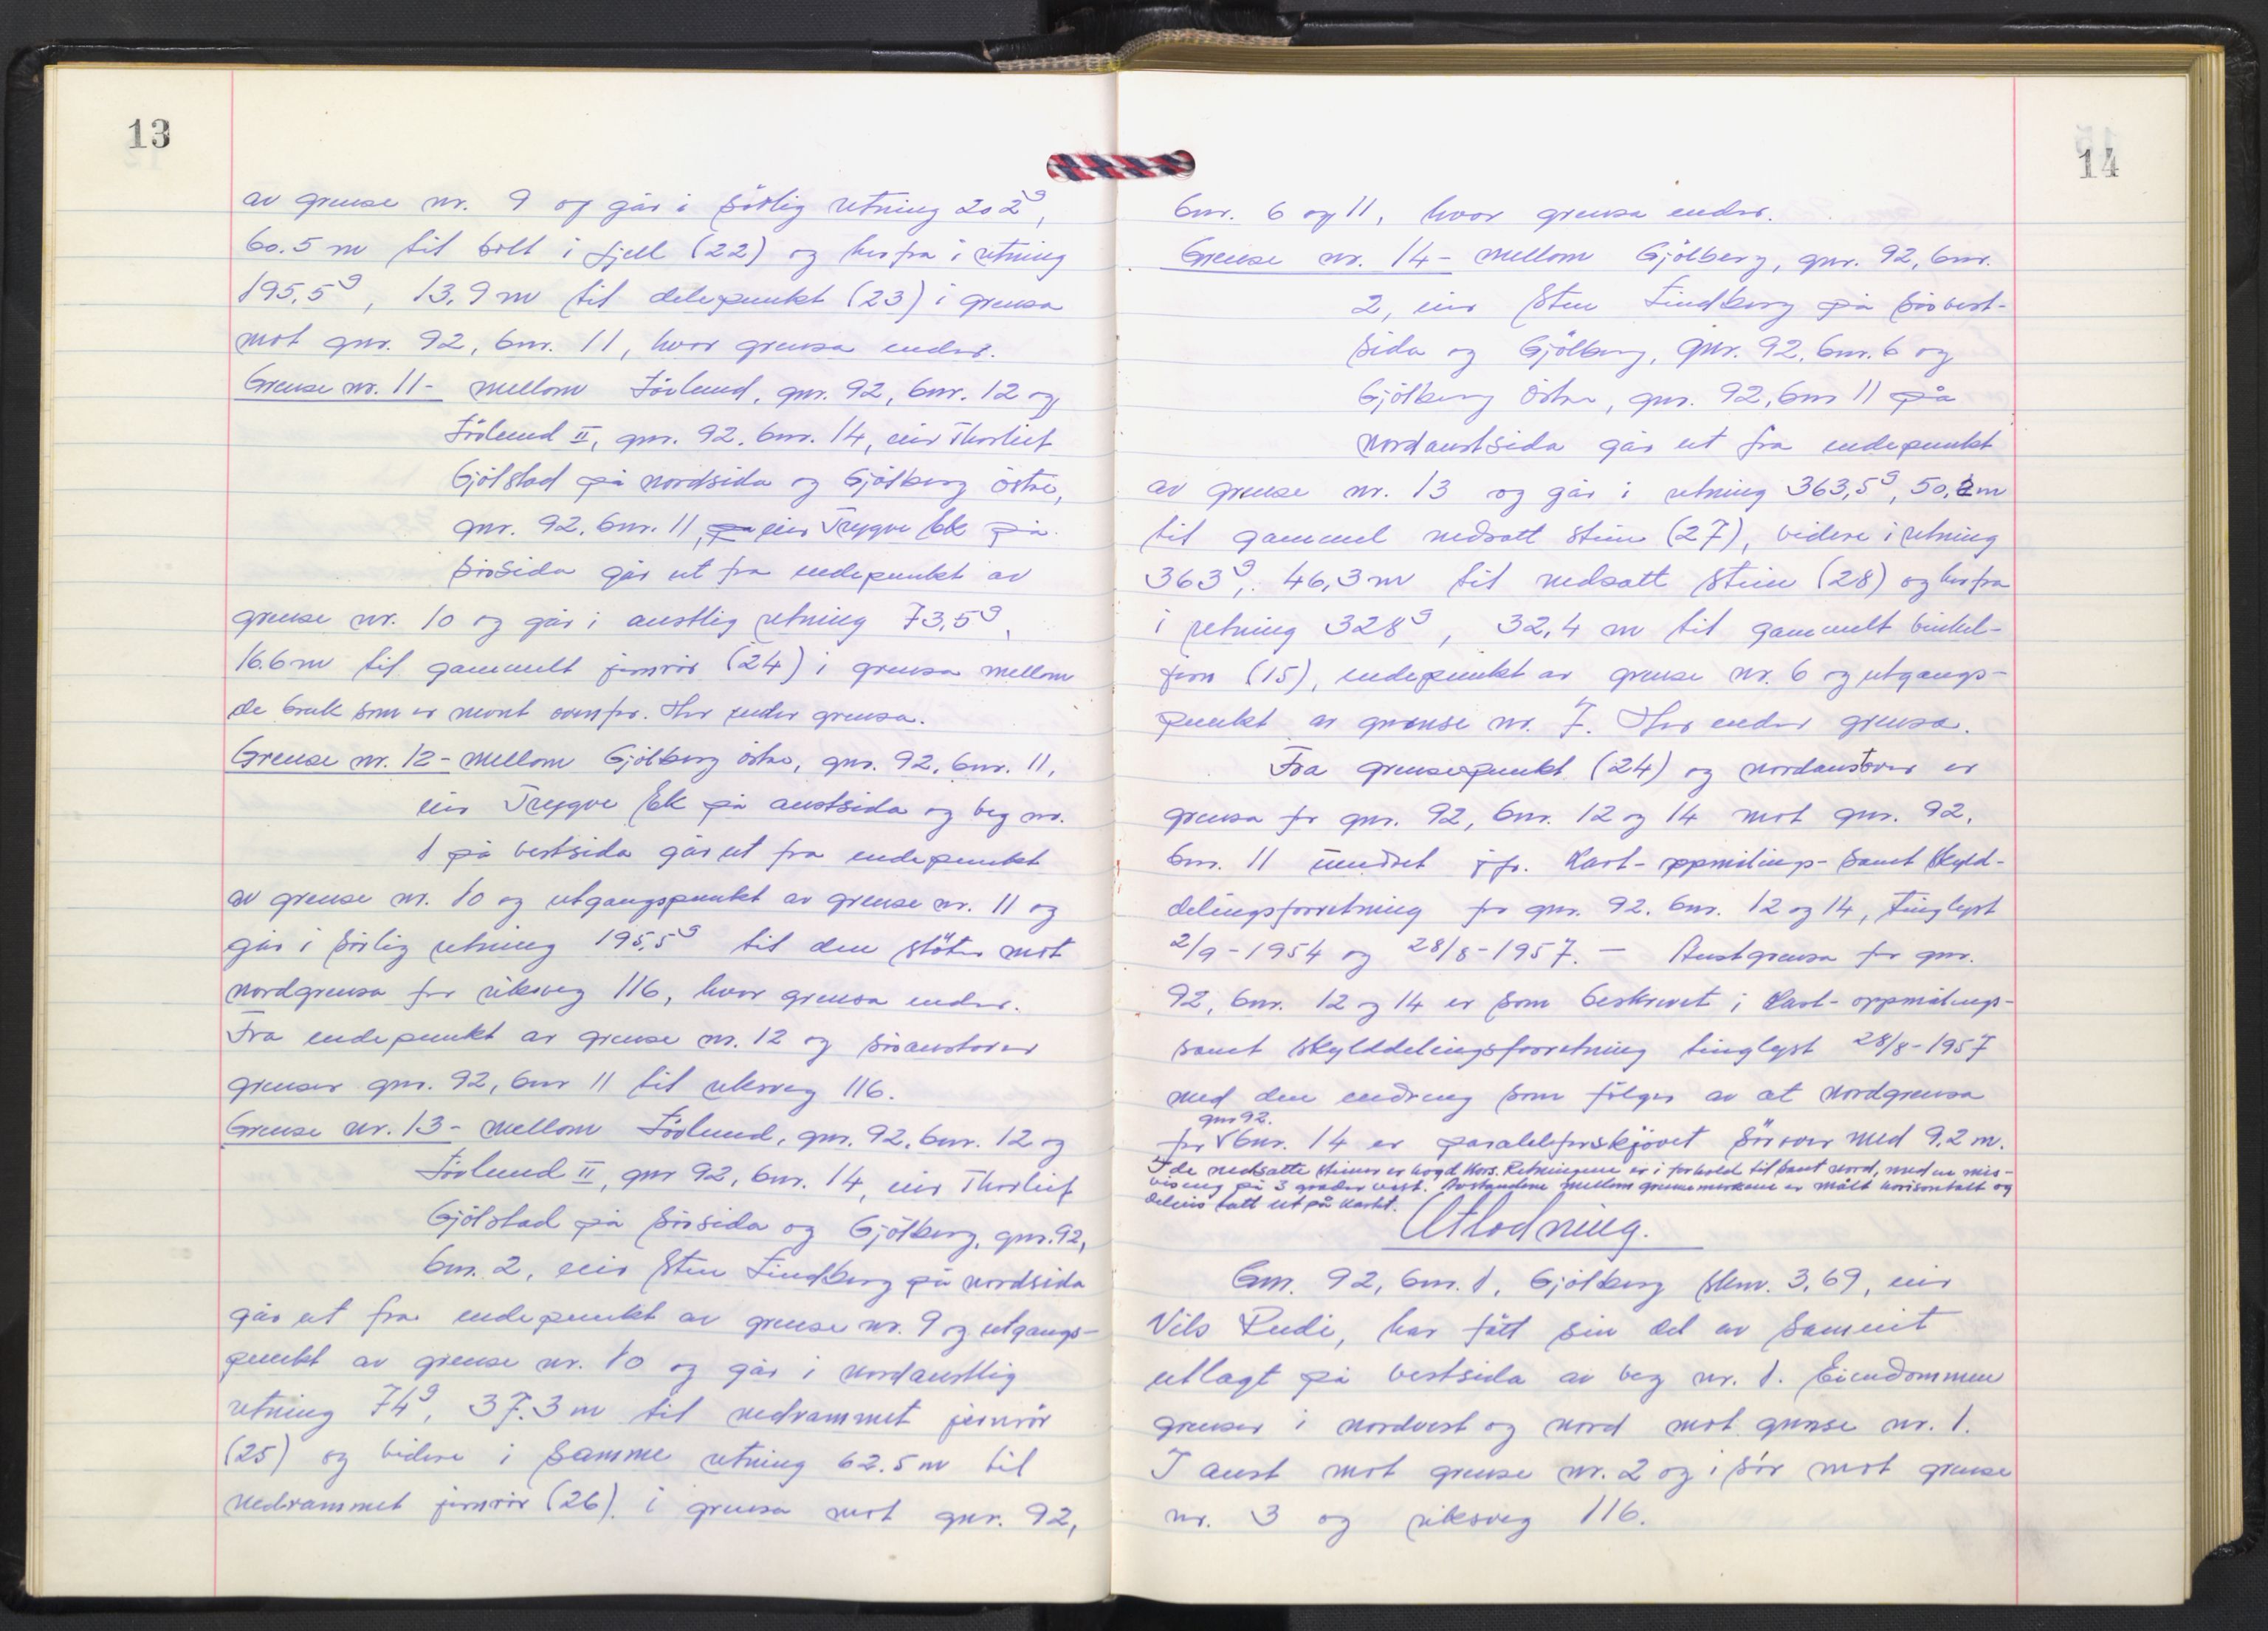 13
av grense nr. 9 og går i sörlig retning 202g,
60.5 m til bolt i fjell (22) og herfra i retning
195,5g, 13,9 m til delepunkt (23) i grensa
mot gnr. 92, bnr. 11, hvor grensa ender.
Grense nr. 11- mellom Lövlund, gnr. 92, bnr. 12 og
Lövlund II, gnr. 92. bnr. 14, eier Thorleif
Gjölstad på nordsida og Gjölberg östre,
gnr. 92. bnr. 11, på eier Trygve Ek på
sörsida går ut fra endepunkt av
grense nr. 10 og går i austlig retning 73,5g,
16.6 m til gammelt jernrör (24) i grensa mellom
de bruk som er nevnt ovenfor. Her ender grensa.
Grense nr. 12- mellom Gjölberg östre, gnr. 92, bnr. 11,
eier Trygve Ek på austsida og veg nr.
1 på vestsida går ut fra endepunkt
av grense nr. 10 og utgangspunkt av grense nr. 11 og
går i sörlig retning 195,5g til den stöter mot
nordgrensa for riksveg 116, hvor grensa ender.
Fra endepunkt av grense nr. 12 og söraustover
grenser gnr. 92, bnr 11 til riksveg 116.
Grense nr. 13- mellom Lövlund, gnr. 92. bnr. 12 og
Lövlund II, gnr 92, bnr. 14, eier Thorleif
Gjölstad på sörsida og Gjölberg, gnr. 92,
bnr. 2, eier Sten Lindberg på nordsida
går ut fra endepunkt av grense nr. 9 og utgangs-
punkt av grense nr. 10 og går i nordaustlig
retning 74g, 37.3 m til nedrammet jernrör
(25) og videre i samme retning 62.5 m til
nedrammet jernrör (26) i grensa mot gnr. 92,
14
bnr. 6 og 11, hvor grensa ender.
Grense nr. 14- mellom Gjölberg, gnr. 92, bnr.
2, eier Sten Lindberg på sörvest-
sida og Gjölberg, gnr. 92, bnr. 6 og
Gjölberg östre, gnr. 92, bnr 11 på
nordaustsida går ut fra endepunkt
av grense nr. 13 og går i retning 363,5g, 50, m
til gammel nedsatt stein (27), videre i retning
363g, 46,3 m til nedsatt stein (28) og herfra
i retning 328g, 32,4 m til gammelt vinkel-
jern (15), endepunkt av grense nr. 6 og utgangs-
punkt av grense nr. 7. Her ender grensa.
Fra grensepunkt (24) og nordaustover er
grensa for gnr. 92, bnr. 12 og 14 mot gnr. 92,
bnr. 11 uendret jfr. Kart- oppmålings- samt skyld-
delingsforretning for gnr. 92. bnr. 12 og 14, tinglyst
2/9-1954 og 28/8-1957. — Austgrensa for gnr.
92, bnr. 12 og 14 er som beskrevet i Kart- oppmålings-
samt skylddelingsforretning tinglyst 28/8-1957
med den endring som fölger av at nordgrensa
gnr 92.
for bnr. 14 er paralellforskjövet sörover med 9.2 m.
I de nedsatte steiner er hogd kors. Retningene er i forhold til sant nord, med en mis-
visning på 3 grader vest. Avstandene mellom grensemerkene er målt horisontalt og
delvis tatt ut på kartet.
Utlodning.
Gnr. 92, bnr. 1, Gjölberg skm. 3,69, eier
Nils Rudi, har fått sin del av sameiet
utlagt på vestsida av veg nr. 1. Eiendommen
grenser i nordvest og nord mot grense nr. 1.
I aust mot grense nr. 2 og i sör mot grense
nr. 3 og riksveg 116.